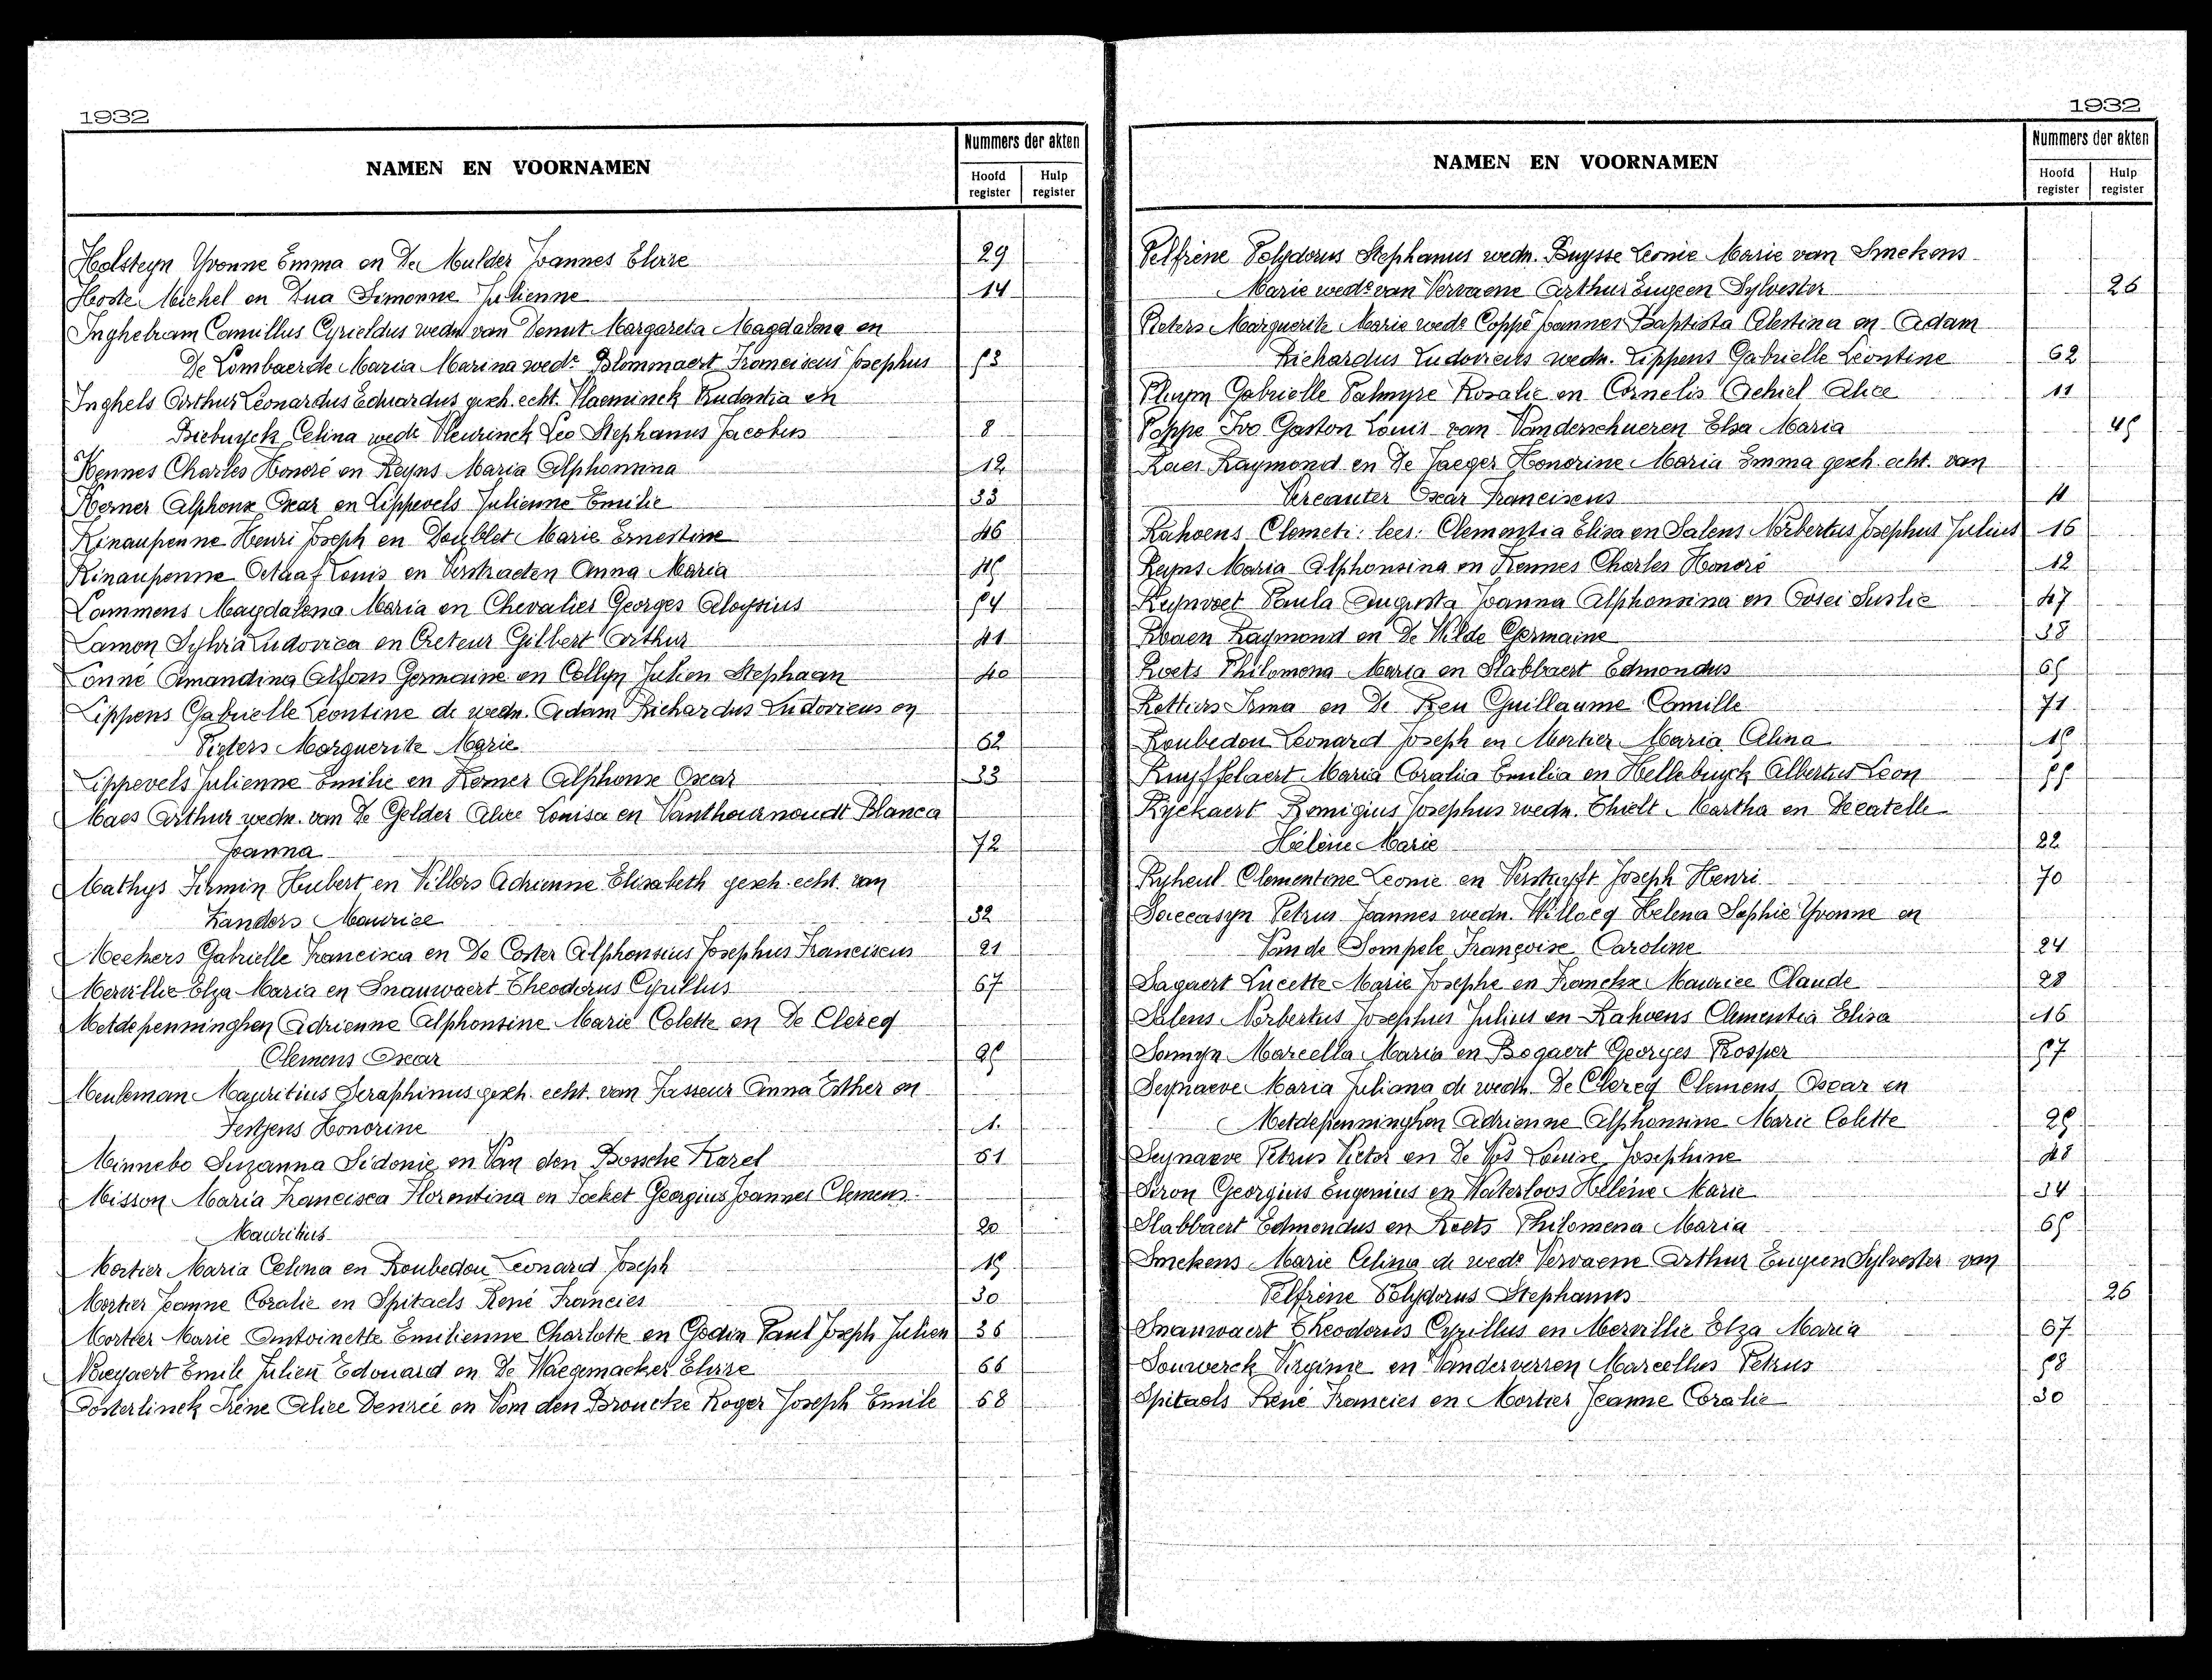 1932
NAMEN EN VOORNAMEN
Nummers der akten
Hoofd register
Hulp register
Holsteyn Yvonne Emma en De Mulder Joannes Elvire 29
Hoste Michel en Dua Simonne Julienne 14
Inghelram Camillus Cyrieldus wedn van Denut Margareta Magdalena en
De Lombaerde Maria Marina wede Blommaert Franciscus Josephus 53
Inghels Arthur Leonardus Eduardus gesch. echt. Vlaeminck Rudentia en
Biebuyck Celina wede Vleurinck Leo Stephanus Jacobus 8
Kennes Charles Honoré en Reyns Maria Alphonsina 12
Kerner Alphonse Oscar en Lippevels Julienne Emilie 33
Kinaupenne Henri Joseph en Doublet Marie Ernestine 46
Kinaupenne Octaaf Louis en Verstraeten Anna Maria 45
Lammens Magdalena Maria en Chevalier Georges Aloysius 54
Lamon Sylvia Ludovica en Creteur Gilbert Arthur 41
Lonné Amandina Alfons Germaine en Collyn Julien Stephaan 40
Lippens Gabrielle Leontine de wedn. Adam Richardus Ludovicus en
Pieters Marguerite Marie 62
Lippevels Julienne Emilie en Kerner Alphonse Oscar 33
Maes Arthur wedn. van De Gelder Alice Louisa en Vanthournoudt Blanca
Joanna 72
Mathys Firmin Hubert en Villers Adrienne Elisabeth gesch. echt. van
Zanders Maurice 32
Meekers Gabrielle Francisca en De Coster Alphonsius Josephus Franciscus 21
Mervillie Elza Maria en Snauwaert Theodorus Cyrillus 67
Metdepenninghen Adrienne Alphonsine Marie Colette en De Clercq
Clemens Oscar 25
Meuleman Mauritius Seraphinus gesch. echt. van Jasseur Anna Esther en
Festjens Honorine 1.
Minnebo Suzanna Sidonie en Van den Bossche Karel 61
Misson Maria Francisca Florentina en Jocket Georgius Joannes Clemens
Mauritius 20
Mortier Maria Celina en Roubedou Leonard Joseph 15
Mortier Jeanne Coralie en Spitaels René Francies 30
Mortier Marie Antoinette Emilienne Charlotte en Godin Paul Joseph Julien 36
Noreyaert Emile Julien Edouard en De Waegemacker Elvire 66
Oosterlinck Irène Alice Desirée en Van den Broucke Roger Joseph Emile 68
1932
NAMEN EN VOORNAMEN
Nummers der akten
Hoofd register
Hulp register
Pelfrène Polydorus Stephanus wedn. Buysse Leonie Marie van Smekens
Marie wede van Vervaene Arthur Eugeen Sylvester 26
Pieters Marguerite Marie wede Coppé Joannes Baptista Celestina en Adam
Richardus Ludovicus wedn. Lippens Gabrielle Léontine 62
Pluym Gabrielle Palmyre Rosalie en Cornelis Achiel Alice 11
Poppe Ivo Gaston Louis van Vanderschueren Elsa Maria 45
Raes Raymond en De Jaeger Honorine Maria Emma gesch. echt. van
Vercauter Oscar Franciscus 4
Rahoens Clemeti: lees: Clementia Elisa en Salens Norbertus Josephus Julius 16
Reyns Maria Alphonsina en Kennes Charles Honoré 12
Reynvoet Paula Augusta Joanna Alphonsina en Cosei Suslie 47
Robaen Raymond en De Wilde Germaine 38
Roets Philomena Maria en Slabbaert Edmondus 65
Rottiers Irma en De Reu Guillaume Camille 71
Roubedou Leonard Joseph en Mortier Maria Celina 15
Ruyffelaert Maria Coralia Emilia en Hellebuyck Albertus Leon 55
Ryckaert Remigius Josephus wedn. Thielt Martha en Decatelle
Hélène Marie 22
Ryheul Clementine Leonie en Verstuyft Joseph Henri 70
Saeccasyn Petrus Joannes wedn. Willocq Helena Sophie Yvonne en
Van de Sompele Françoise Caroline 24
Sagaert Lucette Marie Josephe en Fromckx Maurice Claude 28
Salens Norbertus Josephus Julius en Rahoens Clementia Elisa 16
Samyn Marcella Maria en Bogaert Georges Prosper 57
Seynaeve Maria Juliana de wedn. De Clercq Clemens Oscar en
Metdepenninghen Adrienne Alphonsine Marie Colette 25
Seynaeve Petrus Victor en De Vos Louise Josephine 48
Siron Georgius Eugenius en Waterloos Hélène Marie 34
Slabbaert Edmondus en Roets Philomena Maria 65
Smekens Marie Celina de wede Vervaene Arthur Eugeen Sylvester van
Pelfrène Polydorus Stephanus 26
Snauwaert Theodorus Cyrillus en Mervillie Elza Maria 67
Souwerck Virginie en Vanderverren Marcellus Petrus 58
Spitaels René Francies en Mortier Jeanne Coralie 30